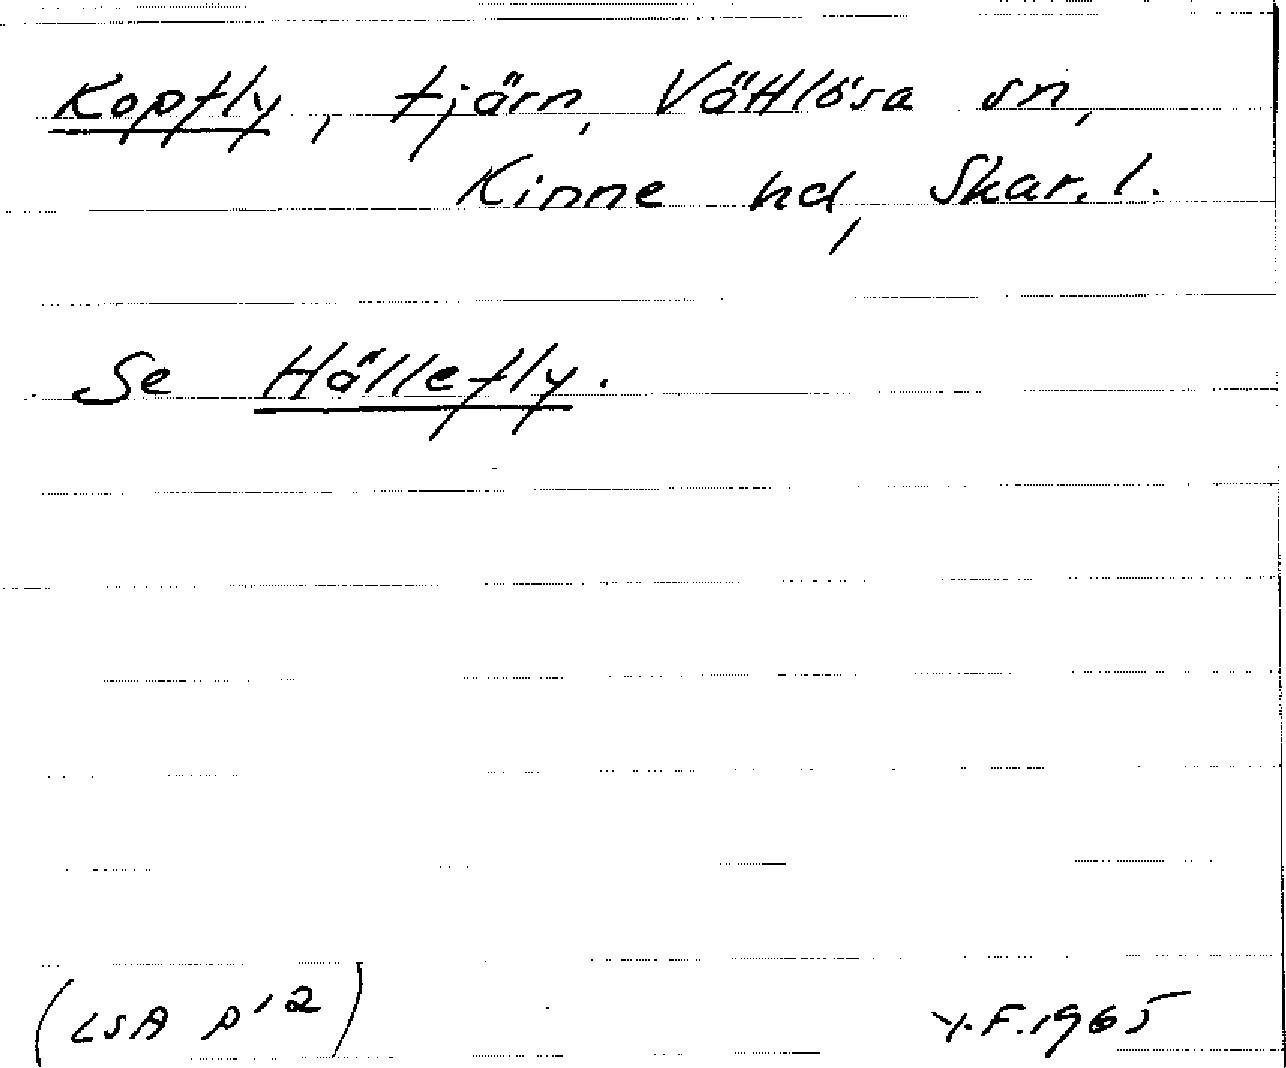 Kopfly, tjärn, Vättlösa sn,
Kinne hd, Skar. l.
Se Hällefly.
(LSA P'2) Y.F. 1965